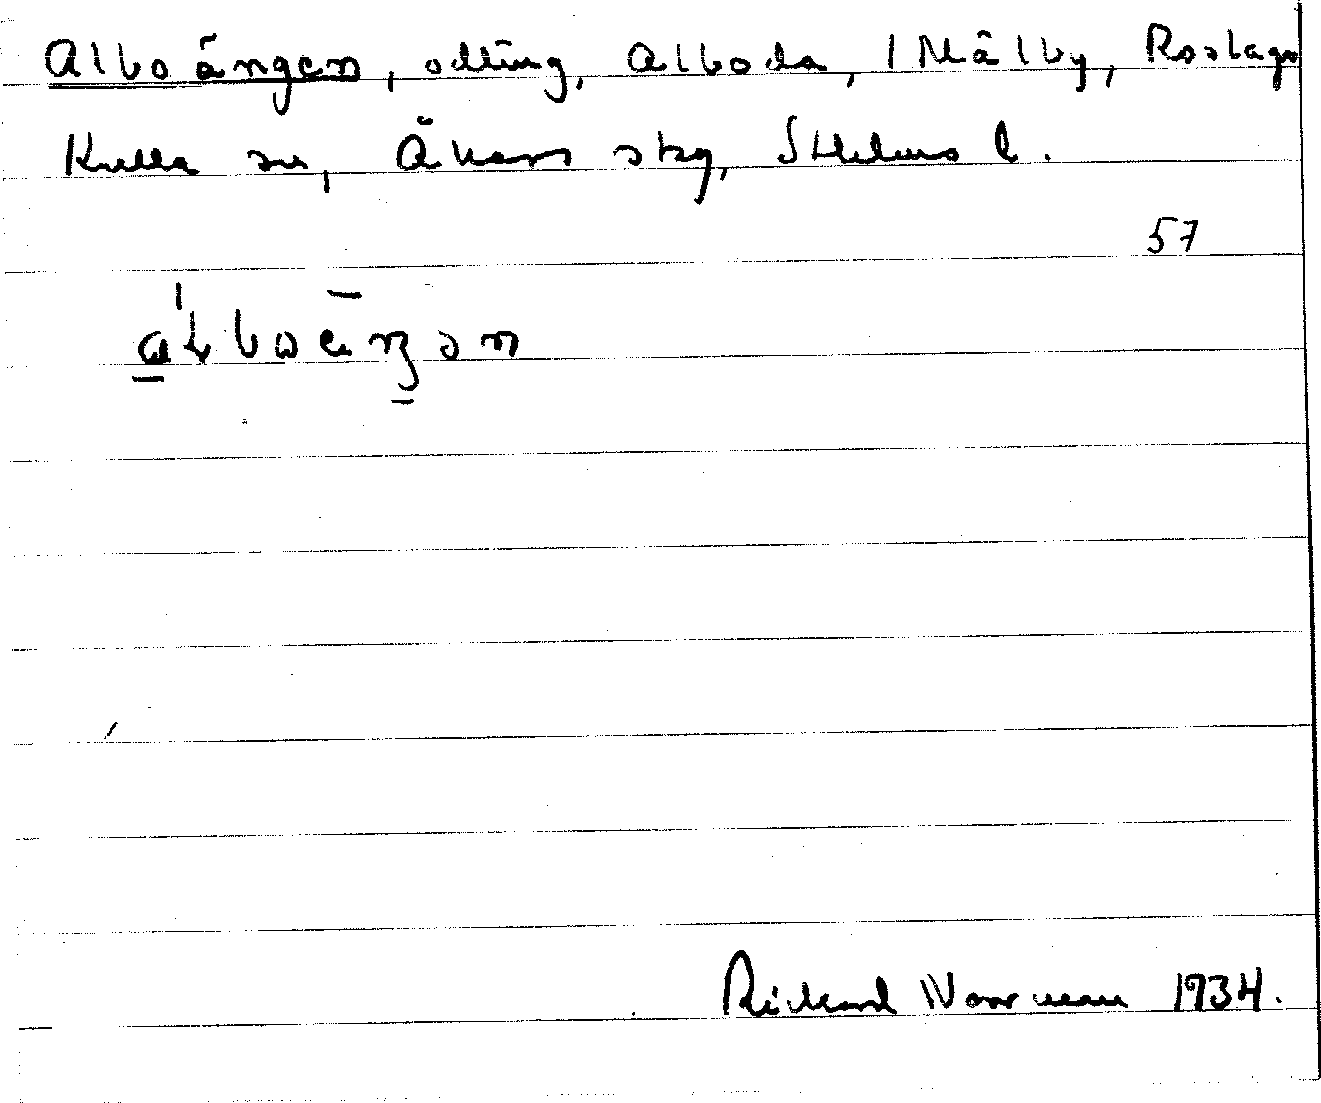 Alboängen, odling, Alboda, 1 Målby, Roslags
Kulla sn, Åkers skg, Sthlms l.
57
Rickard Norrman 1934.